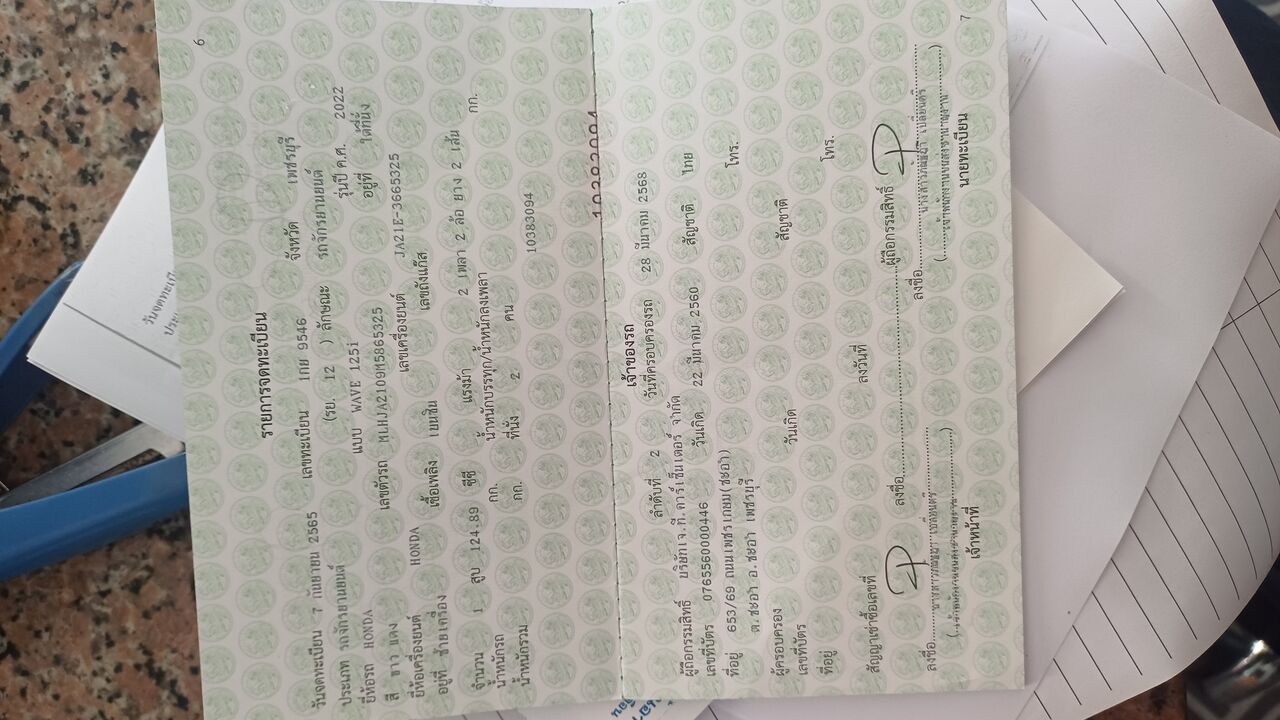 6
รายการจดทะเบียน
วันจดทะเบียน 7 กันยายน 2565 เลขทะเบียน 1กย 9546 จังหวัด เพชรบุรี
ประเภท รถจักรยานยนต์ (รย. 12 ) ลักษณะ รถจักรยานยนต์
ยี่ห้อรถ HONDA แบบ WAVE 125i รุ่นปี ค.ศ. 2022
สี ขาว แดง เลขตัวรถ MLHJA2109M5865325 อยู่ที่ ใต้ที่นั่ง
ยี่ห้อเครื่องยนต์ HONDA เลขเครื่องยนต์ JA21E-3665325
อยู่ที่ ซ้ายเครื่อง เชื้อเพลิง เบนซิน เลขถังแก๊ส
จำนวน 1 สูบ 124.89 ซีซี แรงม้า 2 เพลา 2 ล้อ ยาง 2 เส้น
น้ำหนักรถ กก. น้ำหนักบรรทุก/น้ำหนักลงเพลา กก.
น้ำหนักรวม กก. ที่นั่ง 2 คน 10383094
เจ้าของรถ
ลำดับที่ 2 วันที่ครอบครองรถ 28 มีนาคม 2568
ผู้ถือกรรมสิทธิ์ บริษัทเจ.ที.คาร์เซ็นเตอร์ จำกัด
เลขที่บัตร 0765560000446 วันเกิด 22 มีนาคม 2560 สัญชาติ ไทย
ที่อยู่ 653/69 ถนนเพชรเกษม(ชะอำ) โทร.
ต.ชะอำ อ.ชะอำ เพชรบุรี
ผู้ครอบครอง
เลขที่บัตร วันเกิด สัญชาติ
ที่อยู่ โทร.
สัญญาเช่าซื้อเลขที่ ลงวันที่
ลงชื่อ ผู้ถือกรรมสิทธิ์
ลงชื่อ ลงชื่อ
เจ้าหน้าที่ นายทะเบียน
7
วันจดทะเ